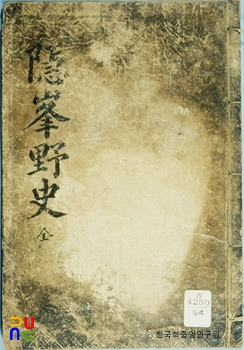 隱峯野史 全
古
4250
94
© 한국학중앙연구원